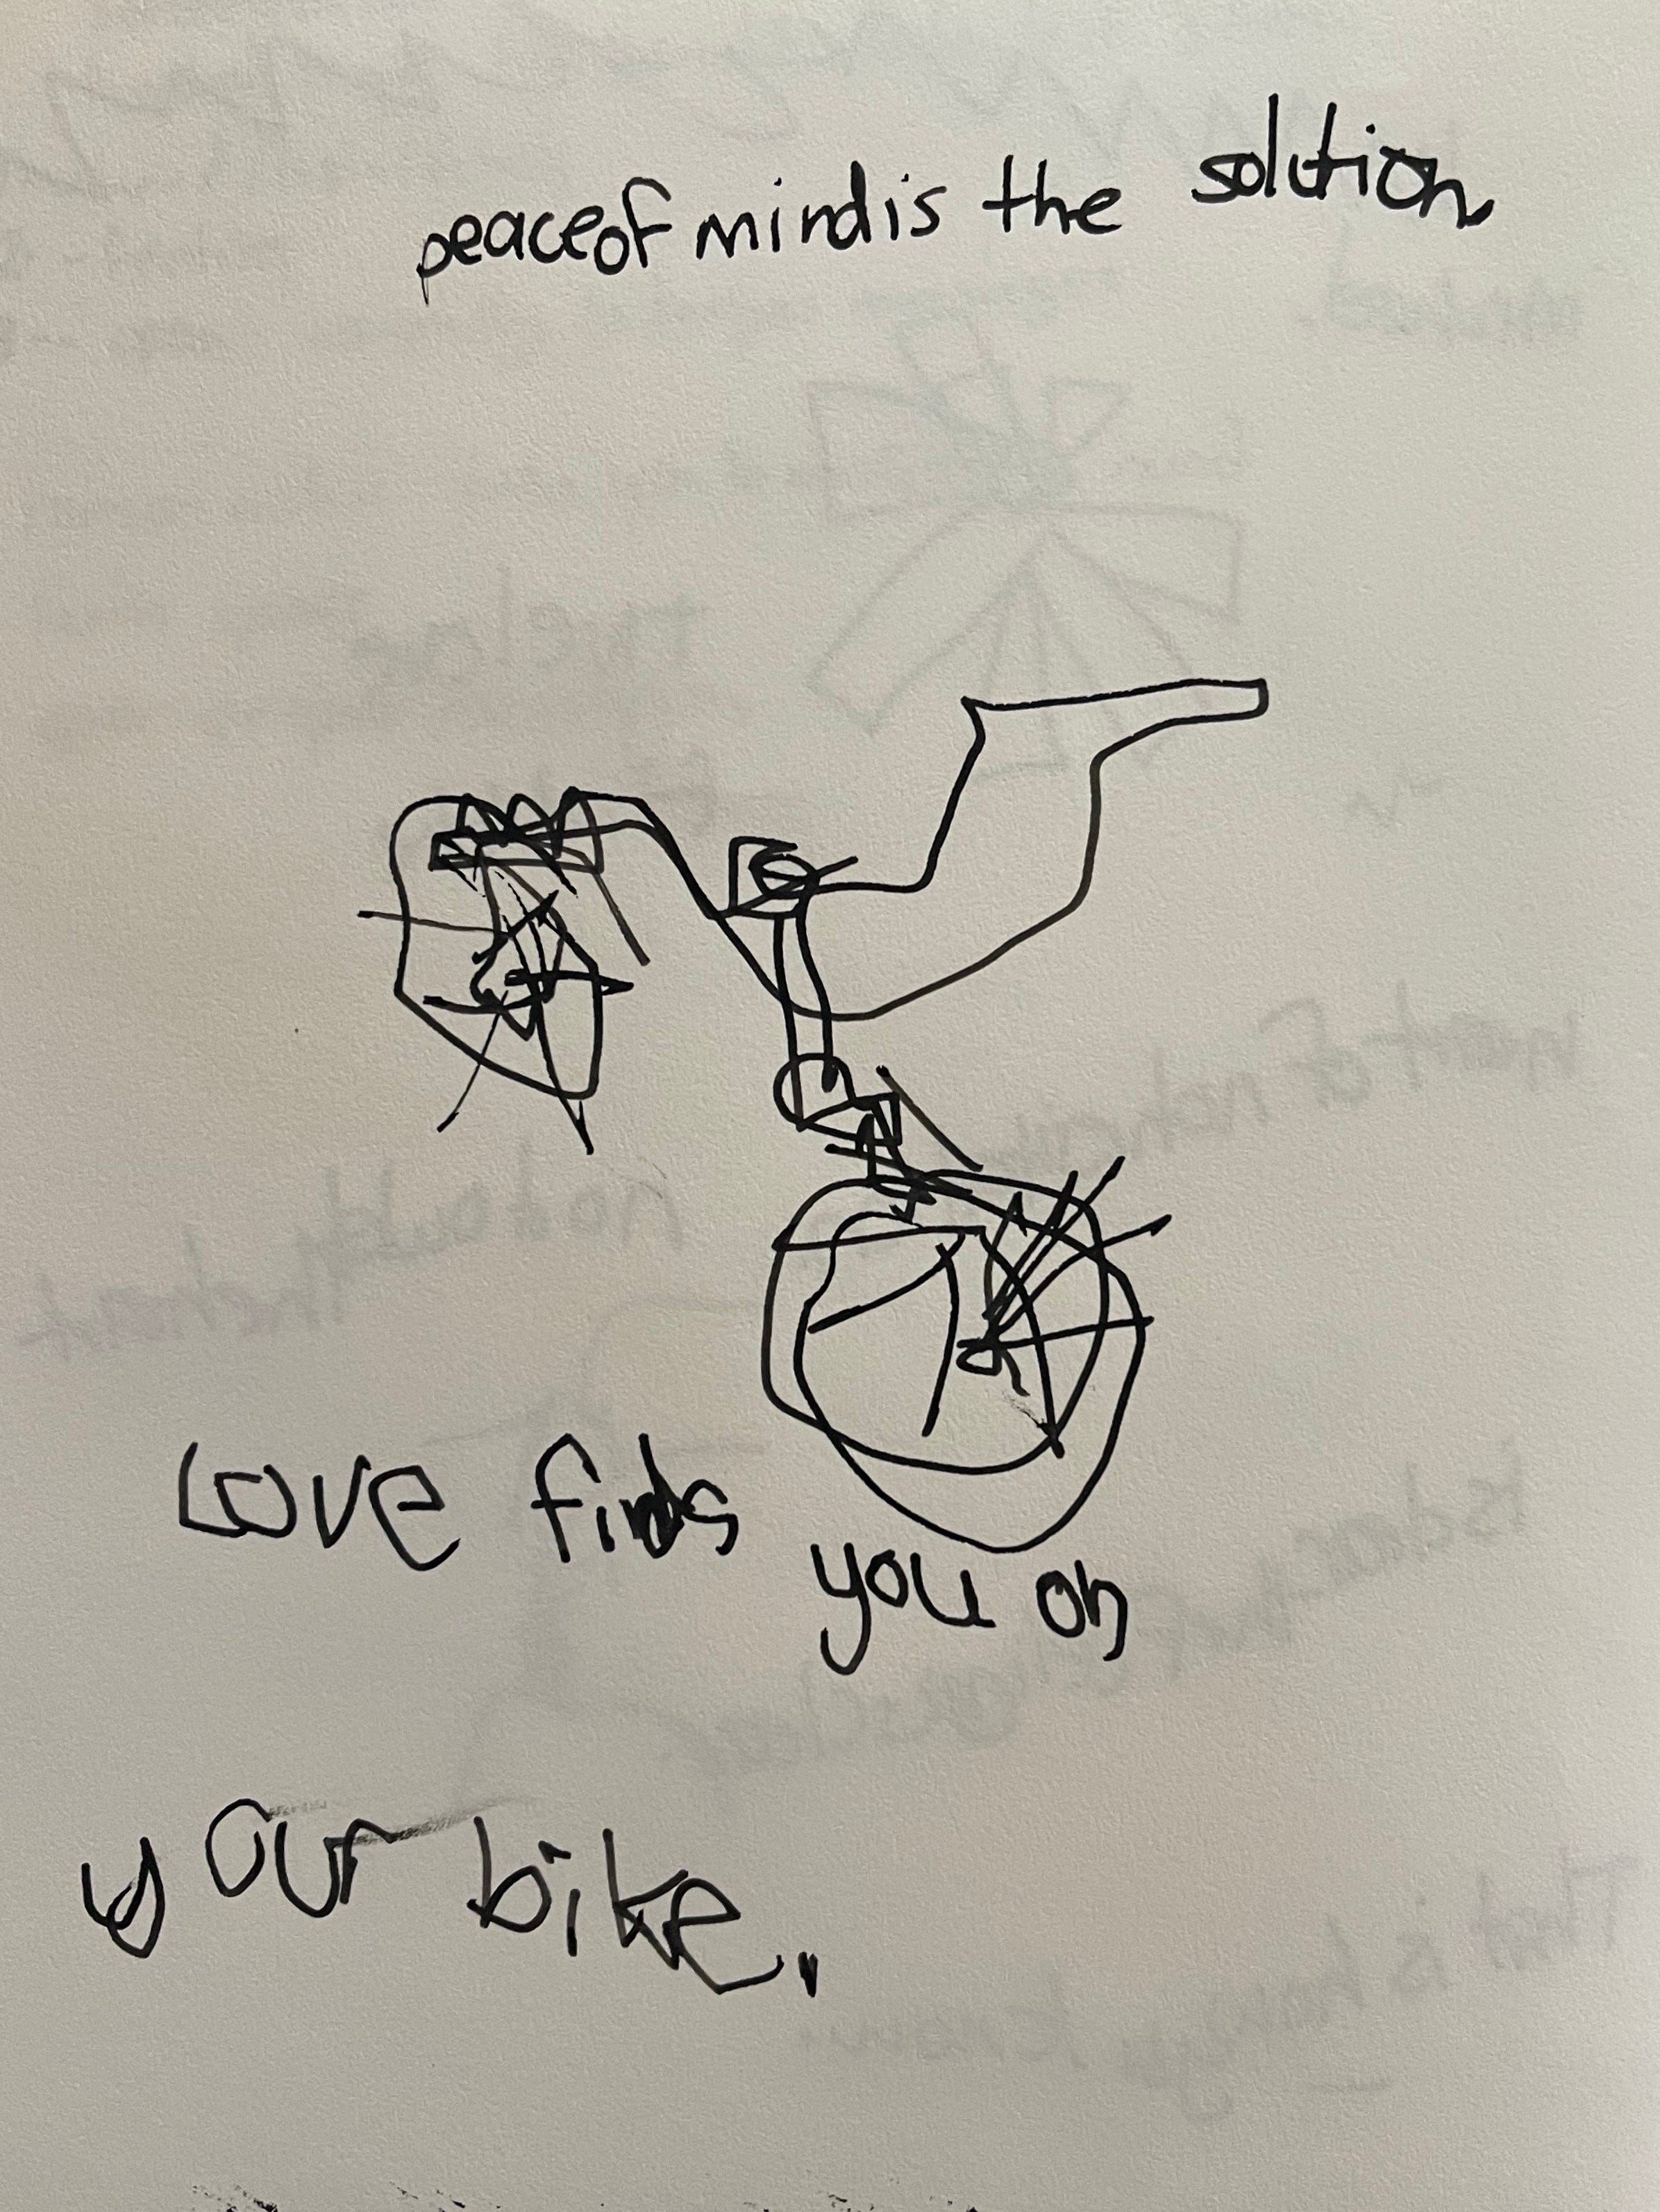 peace of mind is the solution
Love finds you on
your bike.